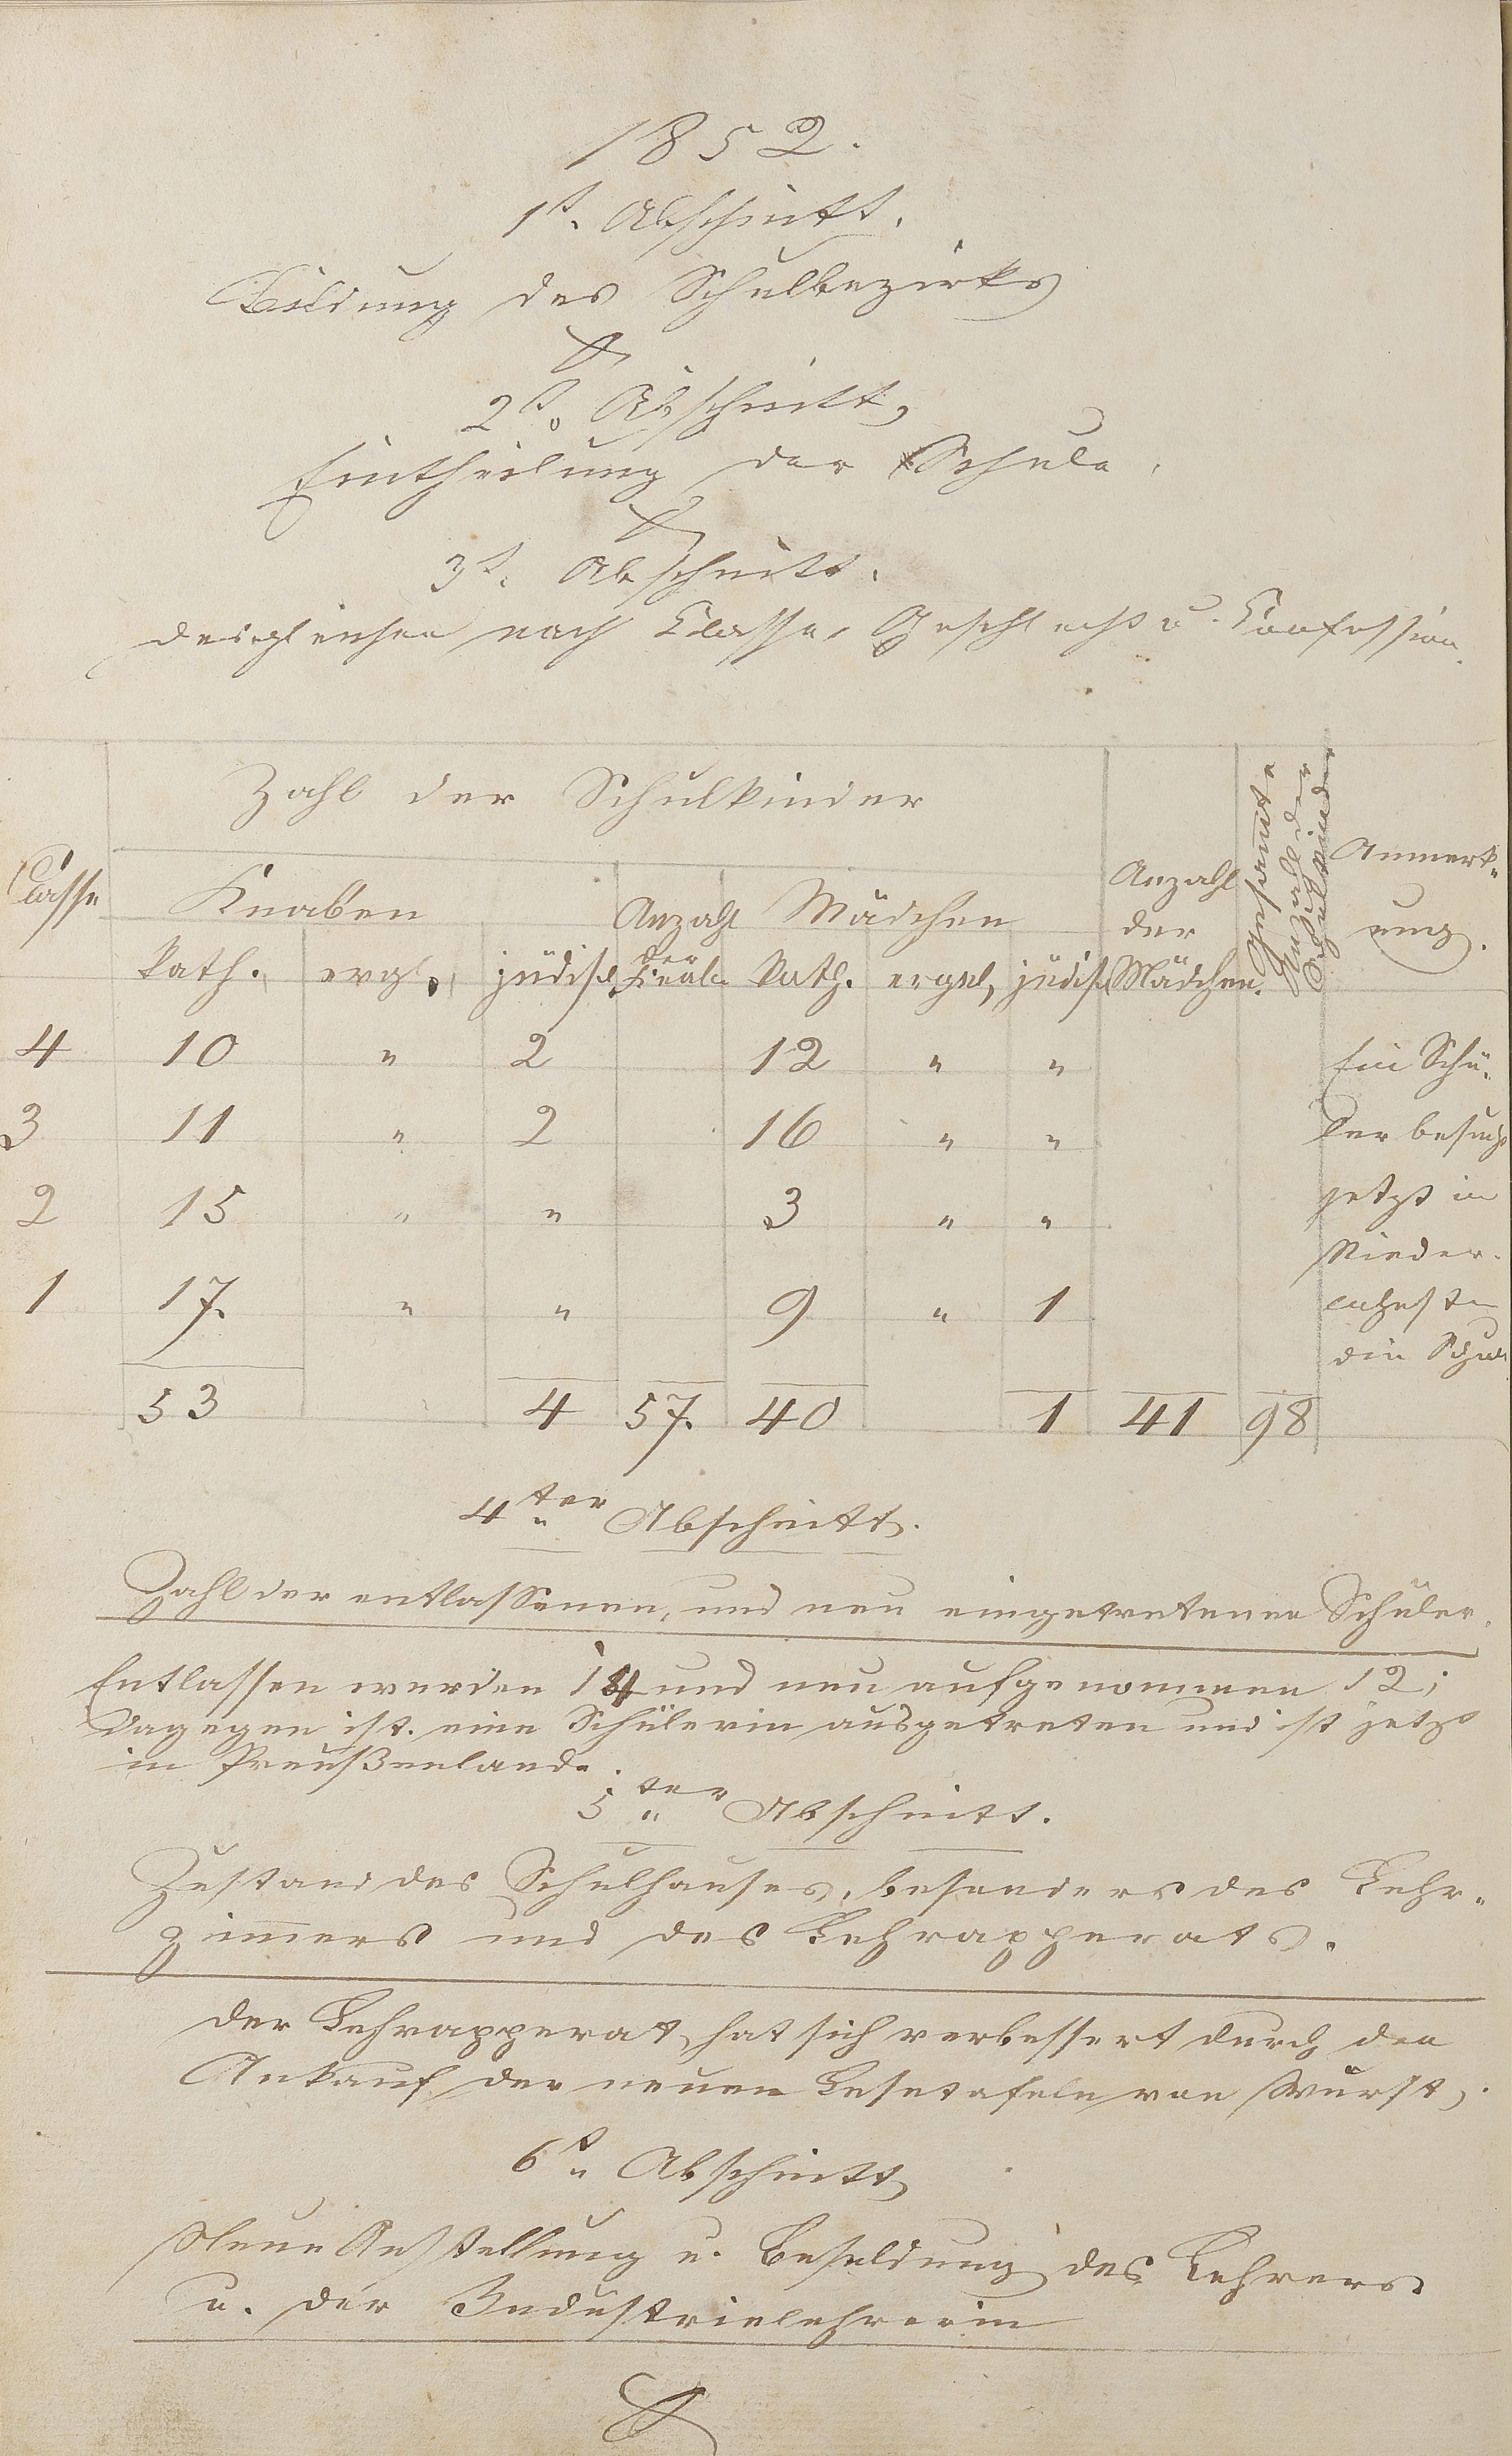 1852.
1t. Abschnitt.
Bildung des Schulbezirks
2t. Abschnitt,
Eintheilung der Schule.
3t. Abschnitt.
desgleichen nach Classe, Geschlecht u. Confession.
Classe
Zahl der Schulkinder
Knaben
Anzahl der Knab.
Mädchen
Anzahl der Mädchen.
Gesammte Anzahl der Schulkinder
Anmerk-
ung.
kath. evgl. jüdisch kath. evgel, jüdisch
4 10 " 2 12 " " Ein Schü-
3 11 " 2 16 " " ler besucht
2 15 " " 3 " " jetzt in
Nieder-
1 17. " " 9 " 1
die Schule
53 4 57. 40 1 41 98
4ter Abschnitt.
Zahl der entlassenen, und neu eingetretenen Schüler.
Entlassen wurden 14 und neu aufgenommen 12;
dagegen ist eine Schülerin ausgetreten und ist jetzt
in Preußenland.
5ter Abschnitt.
Zustand des Schulhauses, besonders des Lehr-
zimmers und des Lehrapperats.
Der Lehrapperat hat sich verbessert durch den
Ankauf der neuen Lesetafeln von Wurst,
6t. Abschnitt
Neue Anstellung u. Besoldung des Lehrers
u. der Industrielehrerin